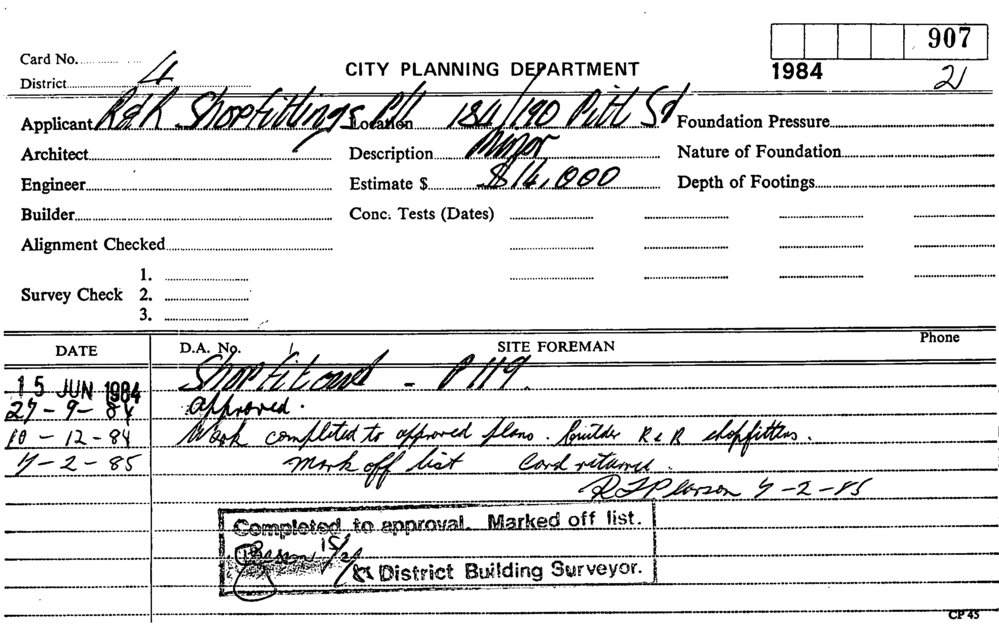 907
Card No.
CITY PLANNING DEPARTMENT
1984
2
District 4
Applicant R & R Shopfittings P/L Location 184/190 Pitt St Foundation Pressure
Architect Description Minor Nature of Foundation
Engineer Estimate $ $14,000 Depth of Footings
Builder Conc. Tests (Dates)
Alignment Checked
1.
Survey Check 2.
3.
DATE D.A. No. SITE FOREMAN Phone
15 JUN 1984 Shopfit P119.
27-9-84 Approved.
10-12-84 Work completed to approved plans. Builder R & R shopfitters.
7-2-85 Mark off list Card returned.
7-2-85
Completed to approval. Marked off list.
15/2/85 District Building Surveyor.
CP 45